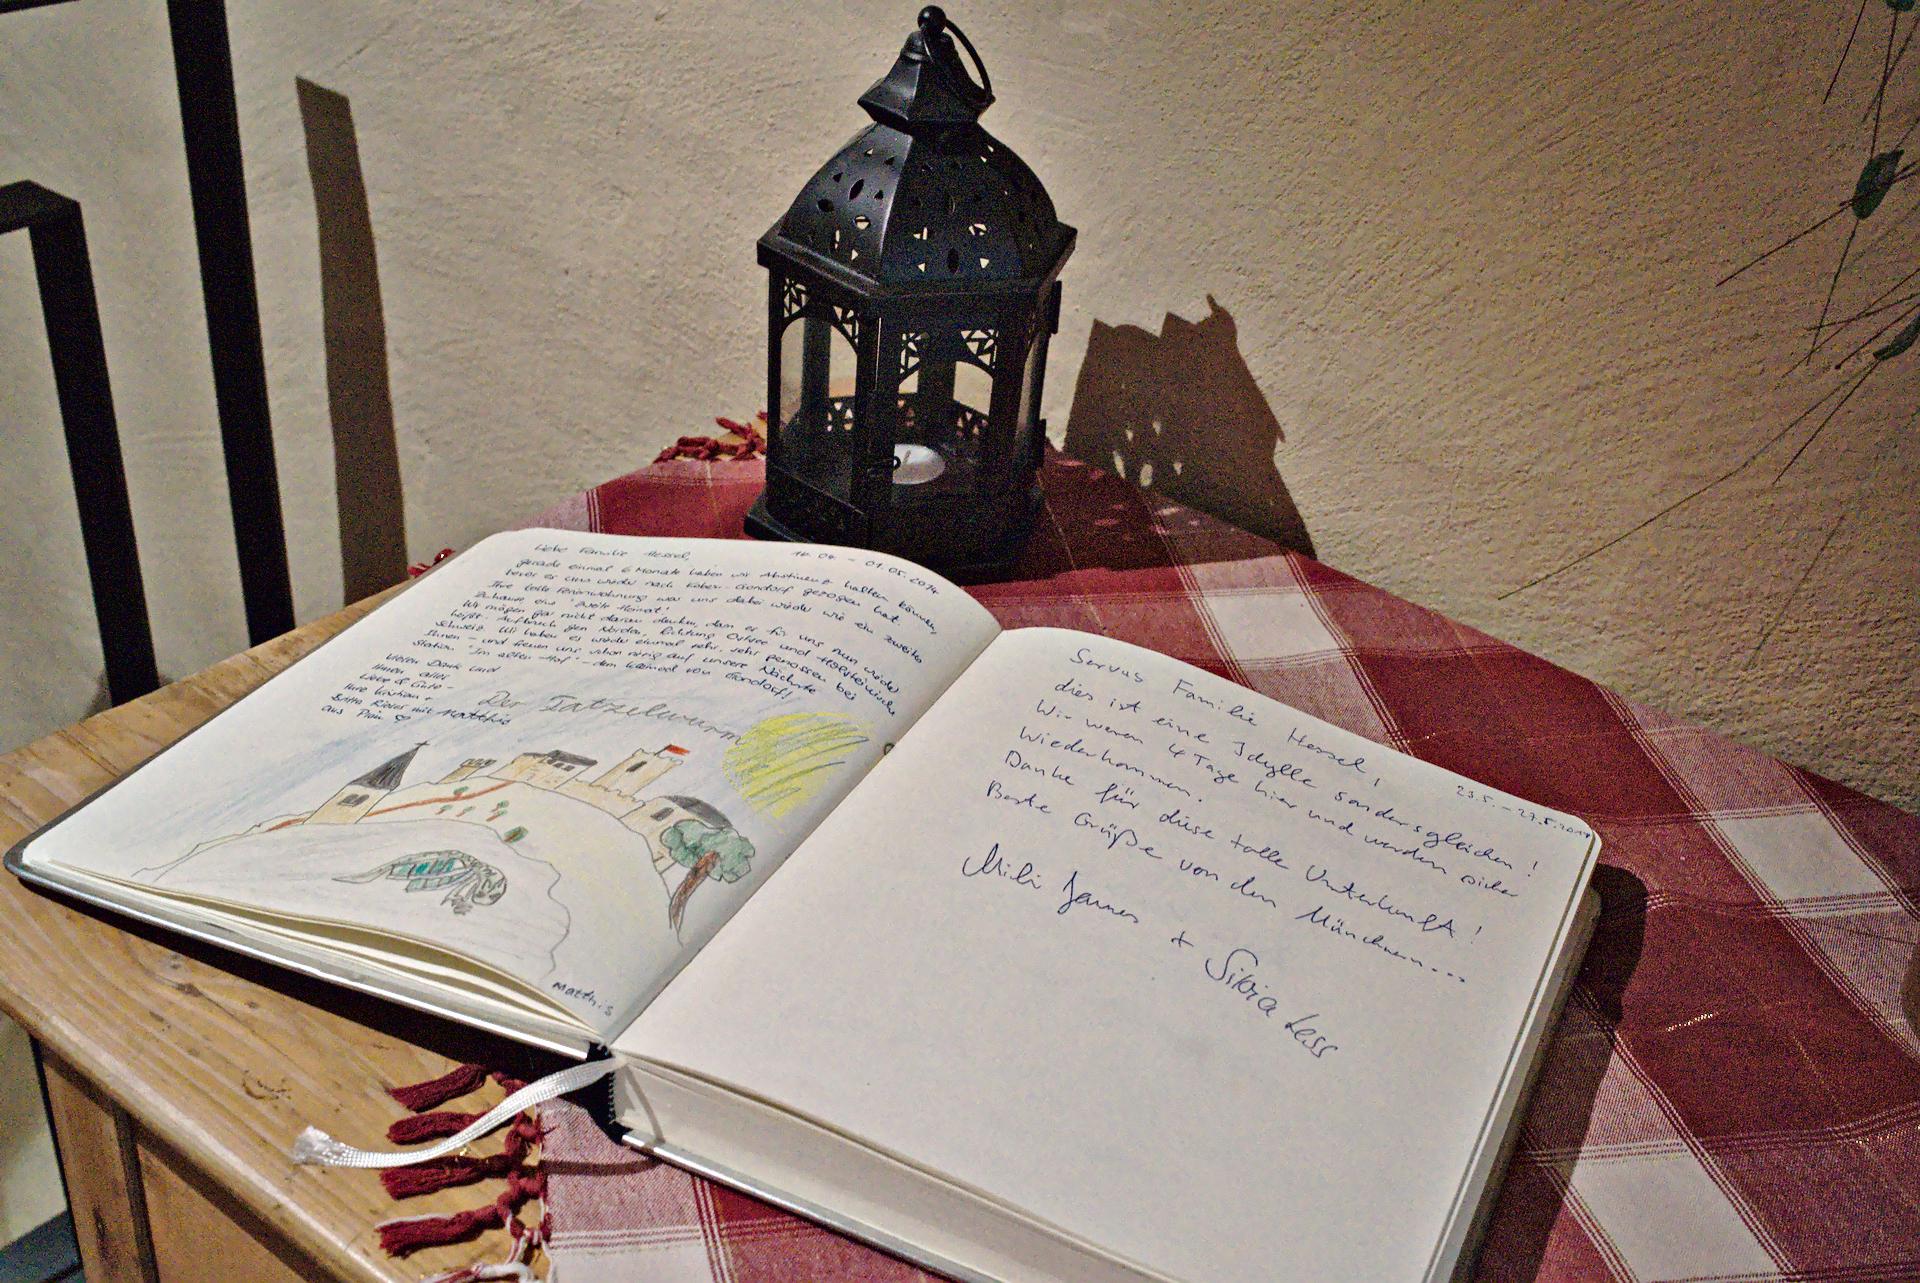 Liebe Familie Hessel, 16.04. – 01.05.2014
gerade einmal 6 Monate haben wir Abstinenz halten können,
bevor es uns wieder nach Kobern-Gondorf gezogen hat.
Ihre tolle Ferienwohnung war uns dabei wieder wie ein zweites
Zuhause, eine zweite Heimat!
Wir mögen gar nicht daran denken, dass es für uns nun wieder
heißt: Aufbruch gen Norden, Richtung Ostsee und Holsteinische
Schweiz. Wir haben es wieder einmal sehr, sehr genossen bei
Ihnen – und freuen uns schon riesig auf unsere nächste
Station "Im alten Hof" – dem Kleinod von Gondorf!
Vielen Dank und
Ihnen alles
Liebe & Gute –
Ihre Kristian +
Britta mit Matthis
aus Plön
Der Tatzelwurm
Matthis
Servus Familie Hessel,
23.5. – 27.5.2014
dies ist eine Idylle sondersgleichen!
Wir waren 4 Tage hier und werden sicher
Wiederkommen.
Danke für diese tolle Unterkunft!
Beste Grüße von den Münchnern...
+ Silvia Less